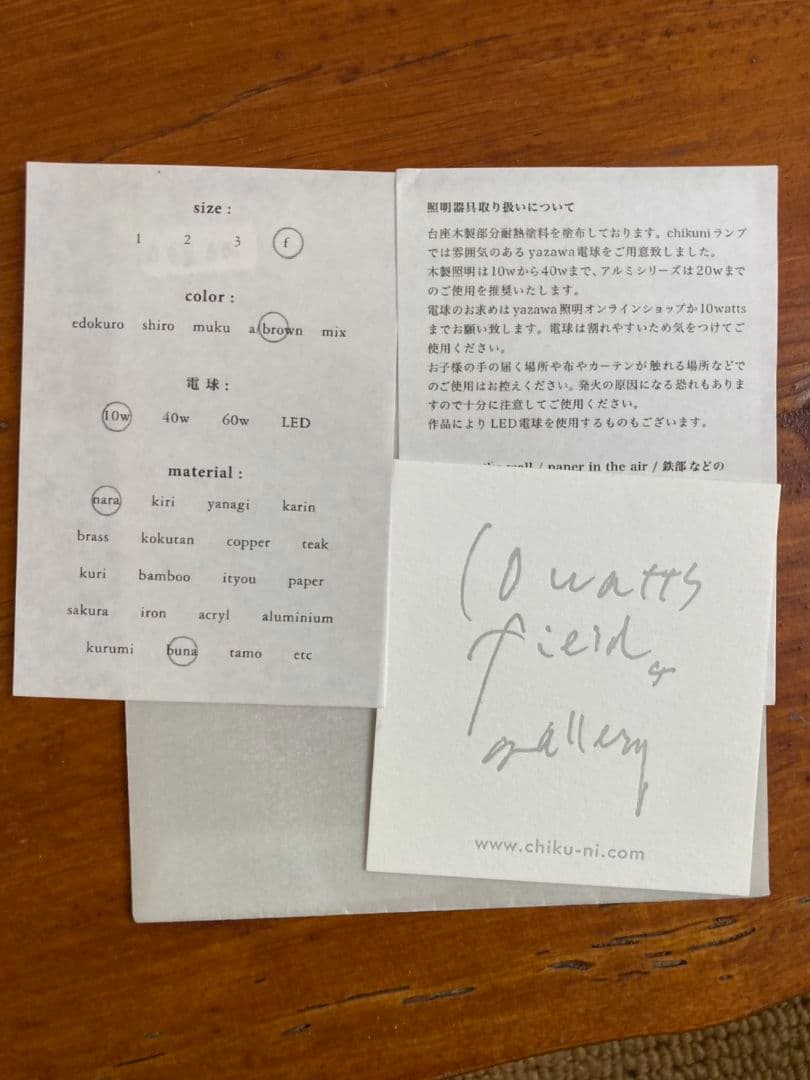 size :
1 2 3 f
color :
edokuro shiro muku a/brown mix
電球 :
10w 40w 60w LED
material :
nara kiri yanagi karin
brass kokutan copper teak
kuri bamboo ityou paper
sakura iron acryl aluminium
kurumi buna tamo etc
照明器具取り扱いについて
台座木製部分耐熱塗料を塗布しております。chikuniランプ
では雰囲気のあるyazawa電球をご用意致しました。
木製照明は10wから40wまで、アルミシリーズは20wまで
のご使用を推奨いたします。
電球のお求めはyazawa照明オンラインショップか10watts
までお願い致します。電球は割れやすいため気をつけてご
使用ください。
お子様の手の届く場所や布やカーテンが触れる場所などで
のご使用はお控えください。発火の原因になる恐れもありま
すので十分に注意してご使用ください。
作品によりLED電球を使用するものもございます。
wall / paper in the air / 鉄部などの
10 watts
field,
gallery
www.chiku-ni.com